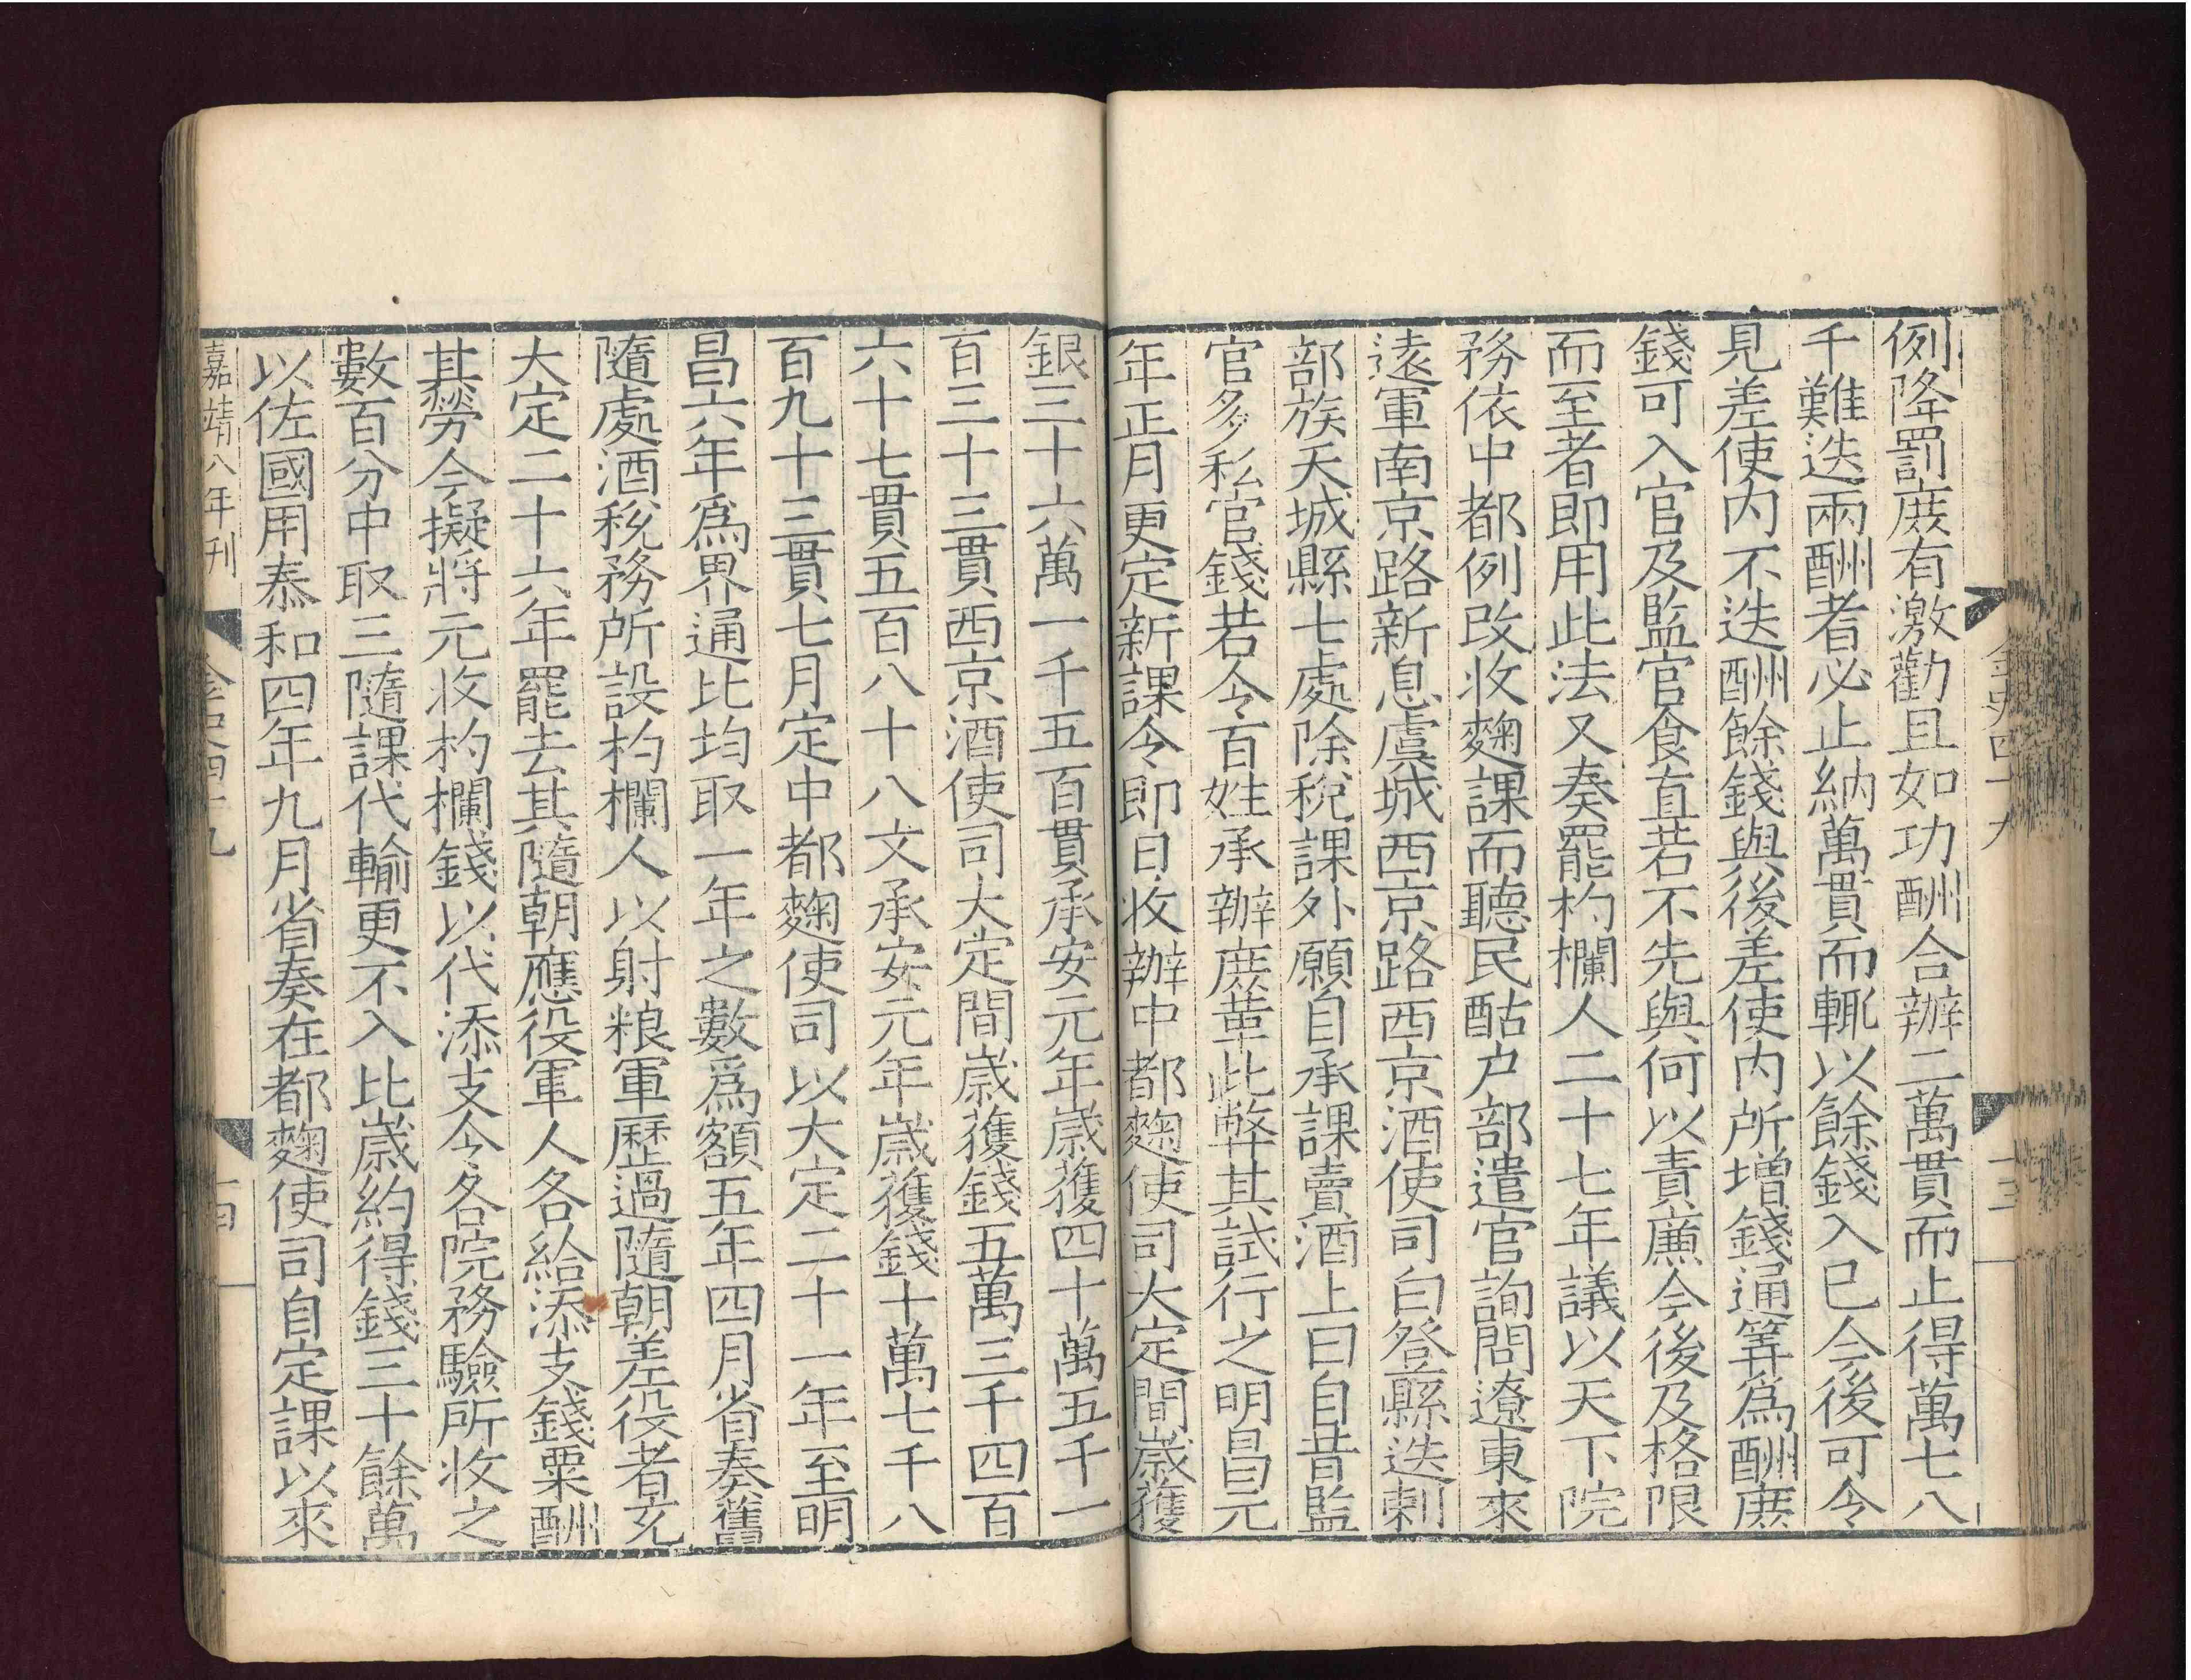 金史四十九
十三
例降罰庶有激勸且如功酬合辦二萬貫而止得萬七八
千難迭兩酬者必止納萬貫而輒以餘錢入已今後可令
見差使内不迭酬餘錢與後差使内所增錢通筭爲酬庶
錢可入官及監官食直若不先與何以責廉今後及格限
而至者即用此法又奏罷杓欄人二十七年議以天下院
務依中都例改收麴課而聽民酤户部遣官詢問遼東來
遠軍南京路新息虞城西京路西京酒使司白登縣迭剌
部族天城縣七處除稅課外願自承課賣酒上曰自昔監
官多私官錢若令百姓承辦庶革此弊其試行之明昌元
年正月更定新課令即日收辦中都麴使司大定間歳獲
銀三十六萬一千五百貫承安元年歳獲四十萬五千一
百三十三貫西京酒使司大定間歳獲錢五萬三千四百
六十七貫五百八十八文承安元年歳獲錢十萬七千八
百九十三貫七月定中都麴使司以大定二十一年至明
昌六年爲界通比均取一年之數爲額五年四月省奏舊
隨處酒稅務所設杓欄人以射粮軍歷過隨朝差役者充
大定二十六年罷去其隨朝應役軍人各給添支錢粟酬
其勞今擬將元收杓欄錢以代添支令各院務驗所收之
數百分中取三隨課代輸更不入比歳約得錢三十餘萬
以佐國用泰和四年九月省奏在都麴使司自定課以來
嘉靖八年刊
金史四十九
十四